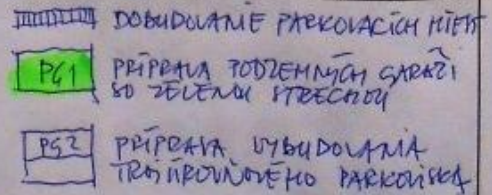 DOBUDOVANIE PARKOVACÍCH MIEST
PG1 PRÍPRAVA PODZEMNÝCH GARÁŽÍ
SO ZELENOU STRECHOU
PG2 PRÍPRAVA VYBUDOVANIA
TROJÚROVŇOVÉHO PARKOVISKA